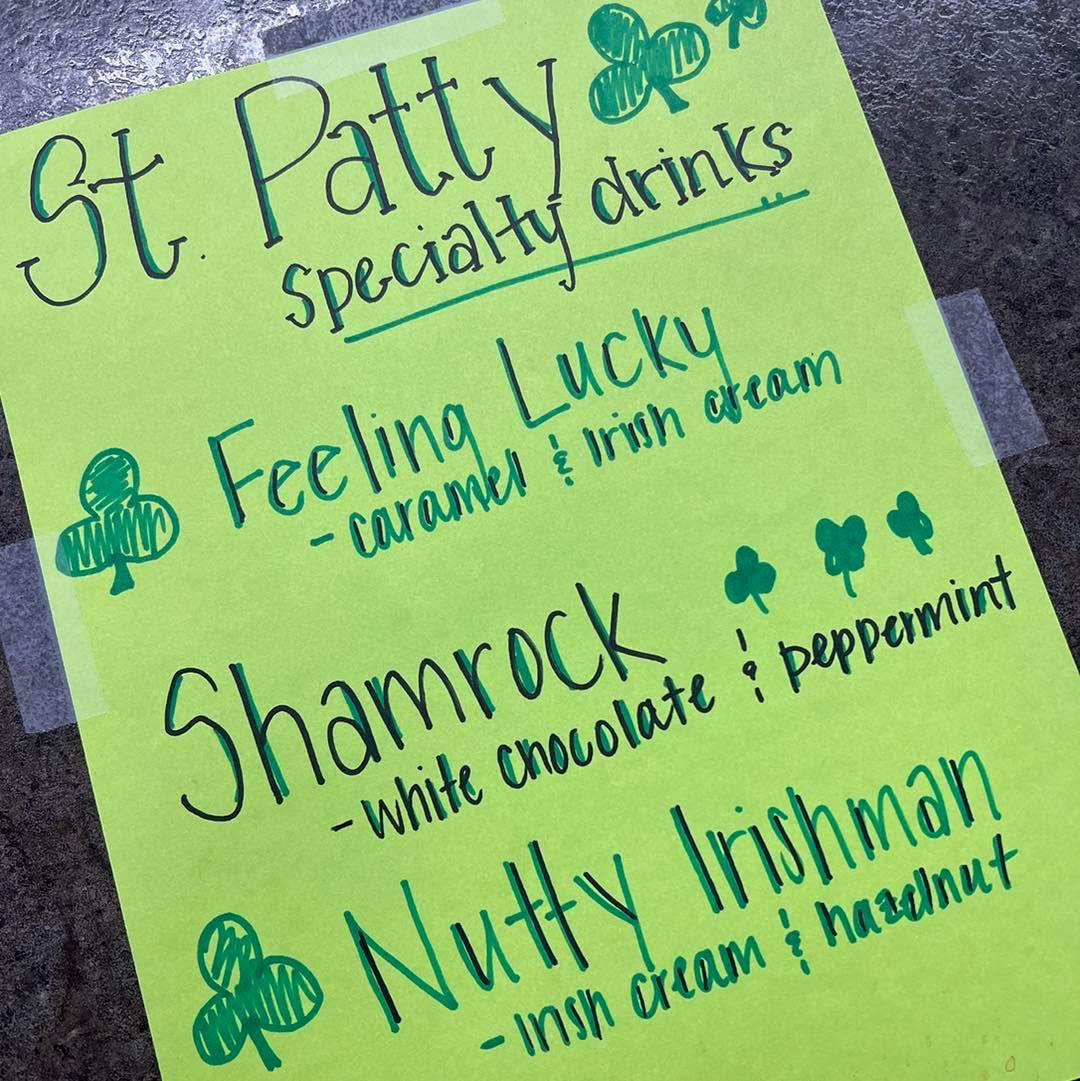 St. Patty
specialty drinks
Feeling Lucky
- caramel & Irish cream
Shamrock
- white chocolate & peppermint
Nutty Irishman
- Irish cream & hazelnut